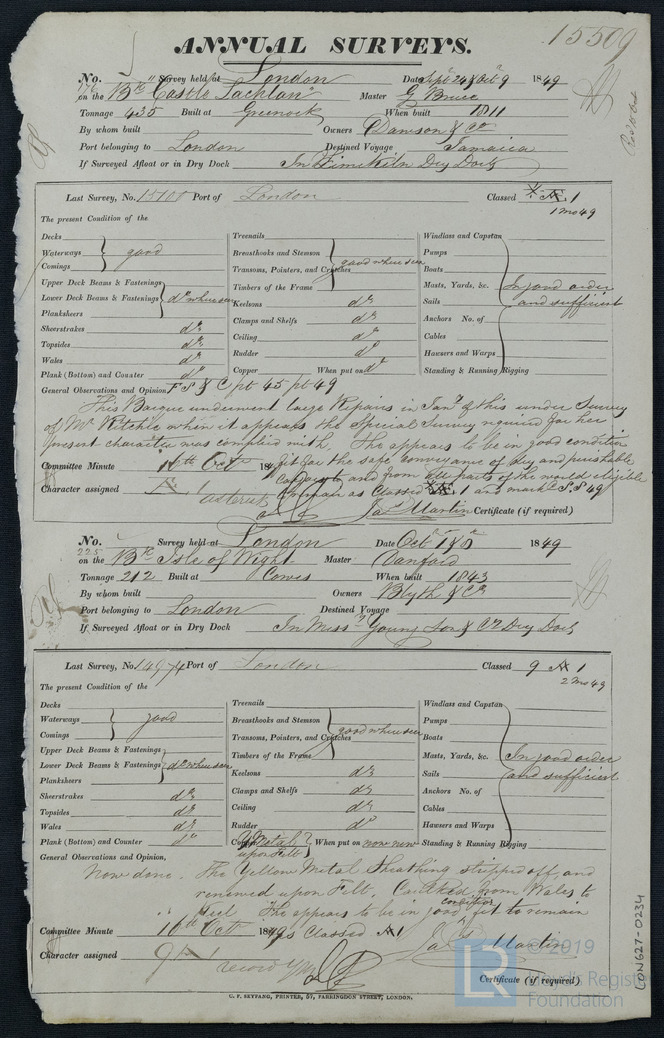 15509
ANNUAL SURVEYS.
No. Survey held at London Date Sept 24 & Oct 9 1849
on the Bk "Castle Lachlan" Master G Bruce
Tonnage 435 Built at Greenock When built 1811
By whom built Owners Dawson & Co
Port belonging to London Destined Voyage Jamaica
If Surveyed Afloat or in Dry Dock In Limekiln Dry Dock
Last Survey, No. 15100 Port of London Classed Æ 1
1 mo 49
The present Condition of the
Decks
Waterways good
Comings
Upper Deck Beams & Fastenings
Lower Deck Beams & Fastenings do where seen
Planksheers
Sheerstrakes do
Topsides do
Wales do
Plank (Bottom) and Counter do
Treenails
Breasthooks and Stemson
Transoms, Pointers, and Crutches good where seen
Timbers of the Frame
Keelsons do
Clamps and Shelfs do
Ceiling do
Rudder do
Copper When put on do
Windlass and Capstan
Pumps
Boats
Masts, Yards, &c. In good order
Sails and sufficient
Anchors No. of
Cables
Hawsers and Warps
Standing & Running Rigging
General Observations and Opinion, F S & C pt 45 pt 49
This Barque underwent large Repairs in Jany of this under Survey
of Mr Ritchie when it appears the Special Survey required for her
present character was complied with. She appears to be in good condition
Committee Minute 10th Octr 184 fit for the safe conveyance of dry and perishable
cargoes to and from all parts of the world eligible
Character assigned Æ
to remain as Classed Æ 1 and marked S.S 49
asterisk
Jas Martin Certificate (if required)
No. Survey held at London Date Oct 1 & 8 1849
225
on the Bk Isle of Wight Master Vanford
Tonnage 212 Built at Cowes When built 1843
By whom built Owners Blyth & Co
Port belonging to London Destined Voyage
If Surveyed Afloat or in Dry Dock In Messrs Young Son & Co Dry Dock
Last Survey, No. 14974 Port of London Classed 9 Æ 1
2 mo 49
The present Condition of the
Decks
Waterways good
Comings
Upper Deck Beams & Fastenings
Lower Deck Beams & Fastenings do where seen
Planksheers
Sheerstrakes do
Topsides do
Wales do
Plank (Bottom) and Counter do
Treenails
Breasthooks and Stemson
Transoms, Pointers, and Crutches good where seen
Timbers of the Frame
Keelsons do
Clamps and Shelfs do
Ceiling do
Rudder do
Copper Y Metal upon Felt When put on now new
Windlass and Capstan
Pumps
Boats
Masts, Yards, &c. In good order
Sails and sufficient
Anchors No. of
Cables
Hawsers and Warps
Standing & Running Rigging
General Observations and Opinion,
Now done. The Yellow Metal Sheathing stripped off, and
renewed upon Felt. Caulked from Wales to
Keel She appears to be in good condition fit to remain
Committee Minute 10th Octr 1849 as Classed Æ 1
Jas Martin
Character assigned 9 Æ 1
record YM
Certificate (if required)
C. F. SEYFANG, PRINTER, 57, FARRINGDON STREET, LONDON.
LON627-0234
© 2019
LR
Lloyd's Register
Foundation